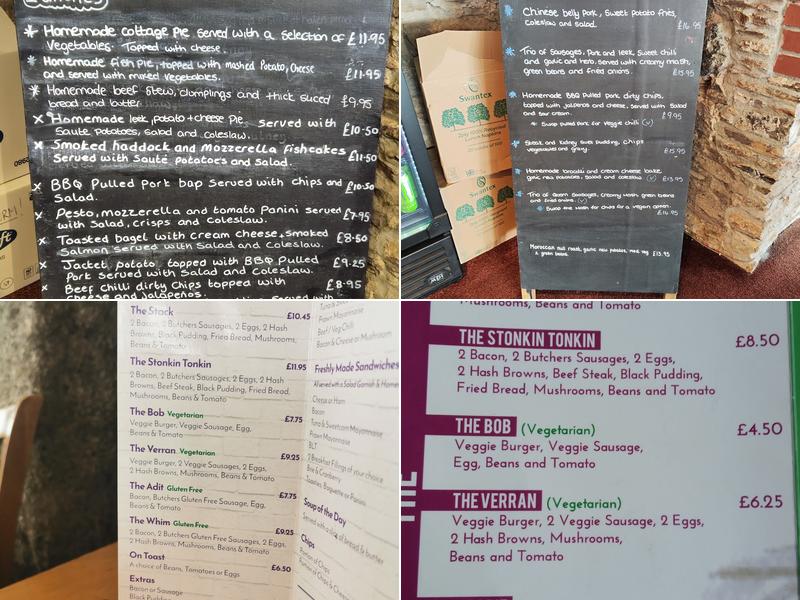 Homemade cottage pie served with a selection of £11.95
vegetables. Topped with cheese.
Homemade fish pie, topped with mashed Potato, Cheese
and served with mixed vegetables. £11.95
Homemade beef stew, dumplings and thick sliced
bread and butter £9.95
Homemade leek, potato + cheese Pie served with
Sauté potatoes, salad and coleslaw. £10.50
Smoked haddock and Mozzerella fishcakes
Served with Sauté potatoes and Salad. £11.50
BBQ Pulled Pork bap Served with chips and
Salad. £10.50
Pesto, mozzerella and tomato Panini served
with Salad, crisps and Coleslaw. £7.95
Toasted bagel with cream cheese + smoked
Salmon served with Salad and Coleslaw. £8.50
Jacket potato topped with BBQ Pulled
Pork served with Salad and Coleslaw. £9.25
Beef chilli dirty chips topped with
cheese and Jalapeños. £8.95
Served with
Chinese belly pork, Sweet potato fries,
coleslaw and salad. £16.95
Trio of Sausages, Pork and leek, Sweet chilli
and garlic and herb, served with creamy mash,
green beans and fried onions. £15.95
Homemade BBQ Pulled Pork dirty chips,
topped with jalapenos and cheese, served with Salad
and sour cream. £9.95
Swap pulled pork for veggie chilli (V)
Steak and kidney suet pudding, chips
vegetables and gravy. £15.95
Homemade broccoli and cream cheese bake,
garlic new potatoes, salad and coleslaw (V) £13.95
Trio of vegan sausages, creamy mash green beans
and fried onions. (V)
Swap the mash for chips for a vegan option.
£14.95
Moroccan nut roast, garlic new potatoes, med veg
& green beans. £13.95
Swantex
Swantex
The Stack £10.45
2 Bacon, 2 Butchers Sausages, 2 Eggs, 2 Hash
Browns, Black Pudding, Fried Bread, Mushrooms,
Beans & Tomato
The Stonkin Tonkin £11.95
2 Bacon, 2 Butchers Sausages, 2 Eggs, 2 Hash
Browns, Beef Steak, Black Pudding, Fried Bread,
Mushrooms, Beans & Tomato
The Bob Vegetarian £7.75
Veggie Burger, Veggie Sausage, Egg,
Beans & Tomato
The Verran Vegetarian £9.25
Veggie Burger, 2 Veggie Sausages, 2 Eggs,
2 Hash Browns, Mushrooms, Beans & Tomato
The Adit Gluten Free £7.75
Bacon, Butchers Gluten Free Sausage, Egg,
Beans & Tomato
The Whim Gluten Free £9.25
2 Bacon, 2 Butchers Gluten Free Sausages, 2 Eggs,
2 Hash Browns, Mushrooms, Beans & Tomato
On Toast £6.50
A choice of Beans, Tomatoes or Eggs
Extras
Bacon or Sausage
Black Pudding
Prawn Mayonnaise
Beef / Veg Chilli
Bacon & Cheese or Mushroom
Freshly Made Sandwiches
All served with a Salad Garnish & Home
Cheese or Ham
Bacon
Tuna & Sweetcorn Mayonnaise
Prawn Mayonnaise
BLT
2 Breakfast Fillings of your choice
Brie & Cranberry
Toasties, Baguette or Panini
Soup of the Day
Served with a slice of bread & butter
Chips
Portion of Chips
Portion of Chips & Cheese
Mushrooms, Beans and Tomato
THE STONKIN TONKIN £8.50
2 Bacon, 2 Butchers Sausages, 2 Eggs,
2 Hash Browns, Beef Steak, Black Pudding,
Fried Bread, Mushrooms, Beans and Tomato
THE BOB (Vegetarian) £4.50
Veggie Burger, Veggie Sausage,
Egg, Beans and Tomato
THE VERRAN (Vegetarian) £6.25
Veggie Burger, 2 Veggie Sausages, 2 Eggs,
2 Hash Browns, Mushrooms,
Beans and Tomato
THE